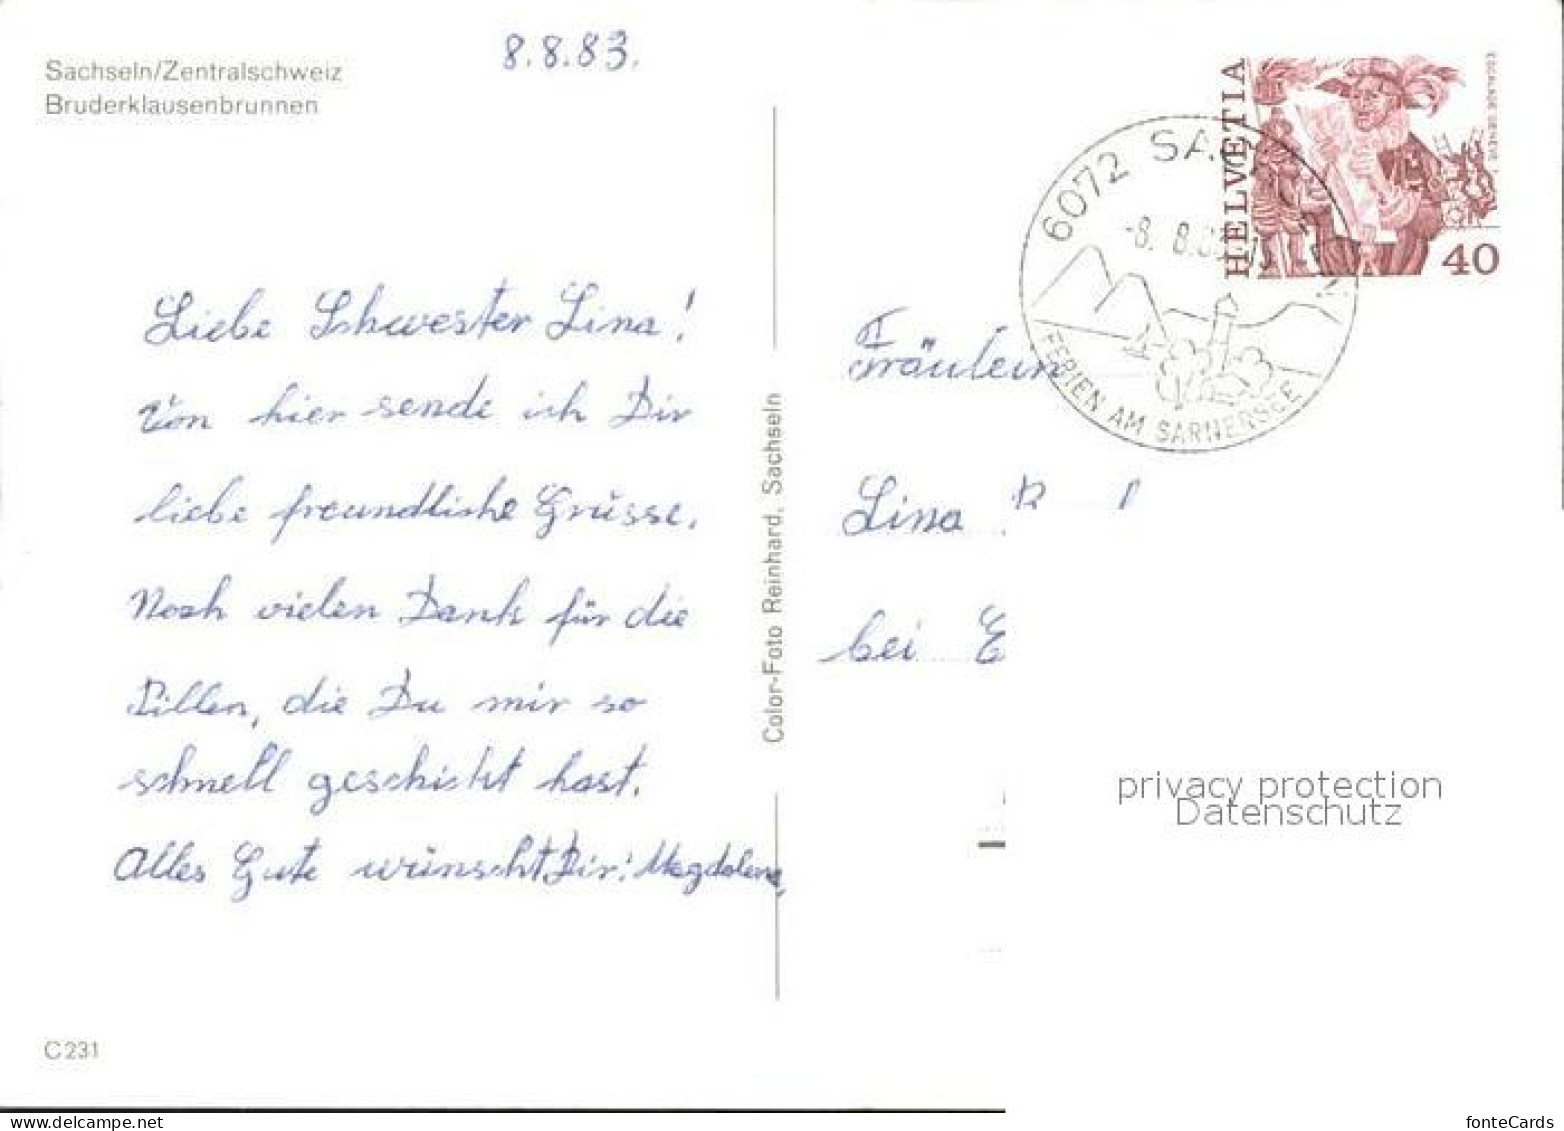 8.8.83.
Sachseln/Zentralschweiz
Bruderklausenbrunnen
Liebe Schwester Lina!
Von hier sende ich Dir
liebe freundliche Grüsse.
Noch vielen Dank für die
Pillen, die Du mir so
schnell geschickt hast.
Alles Gute wünscht Dir: Magdalena,
C231
Color-Foto Reinhard, Sachseln
HELVETIA
ESCALADE GENEVE
40
6072 SA
-8. 8.8
FERIEN AM SARNERSEE
Fräulein
Lina
bei E
privacy protection
Datenschutz
www.delcampe.net
fonteCards